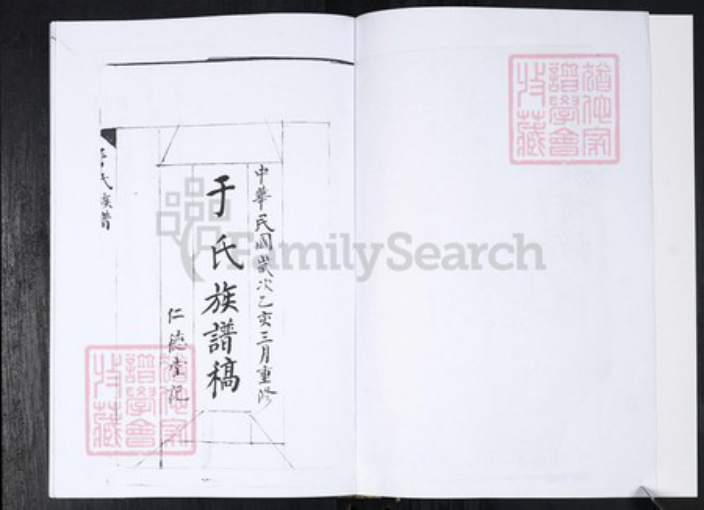 中華民國歲次乙亥三月重修
于氏族譜稿
仁德堂記
于氏族譜
FamilySearch
猶他家
譜學會
收藏
猶他家
譜學會
收藏